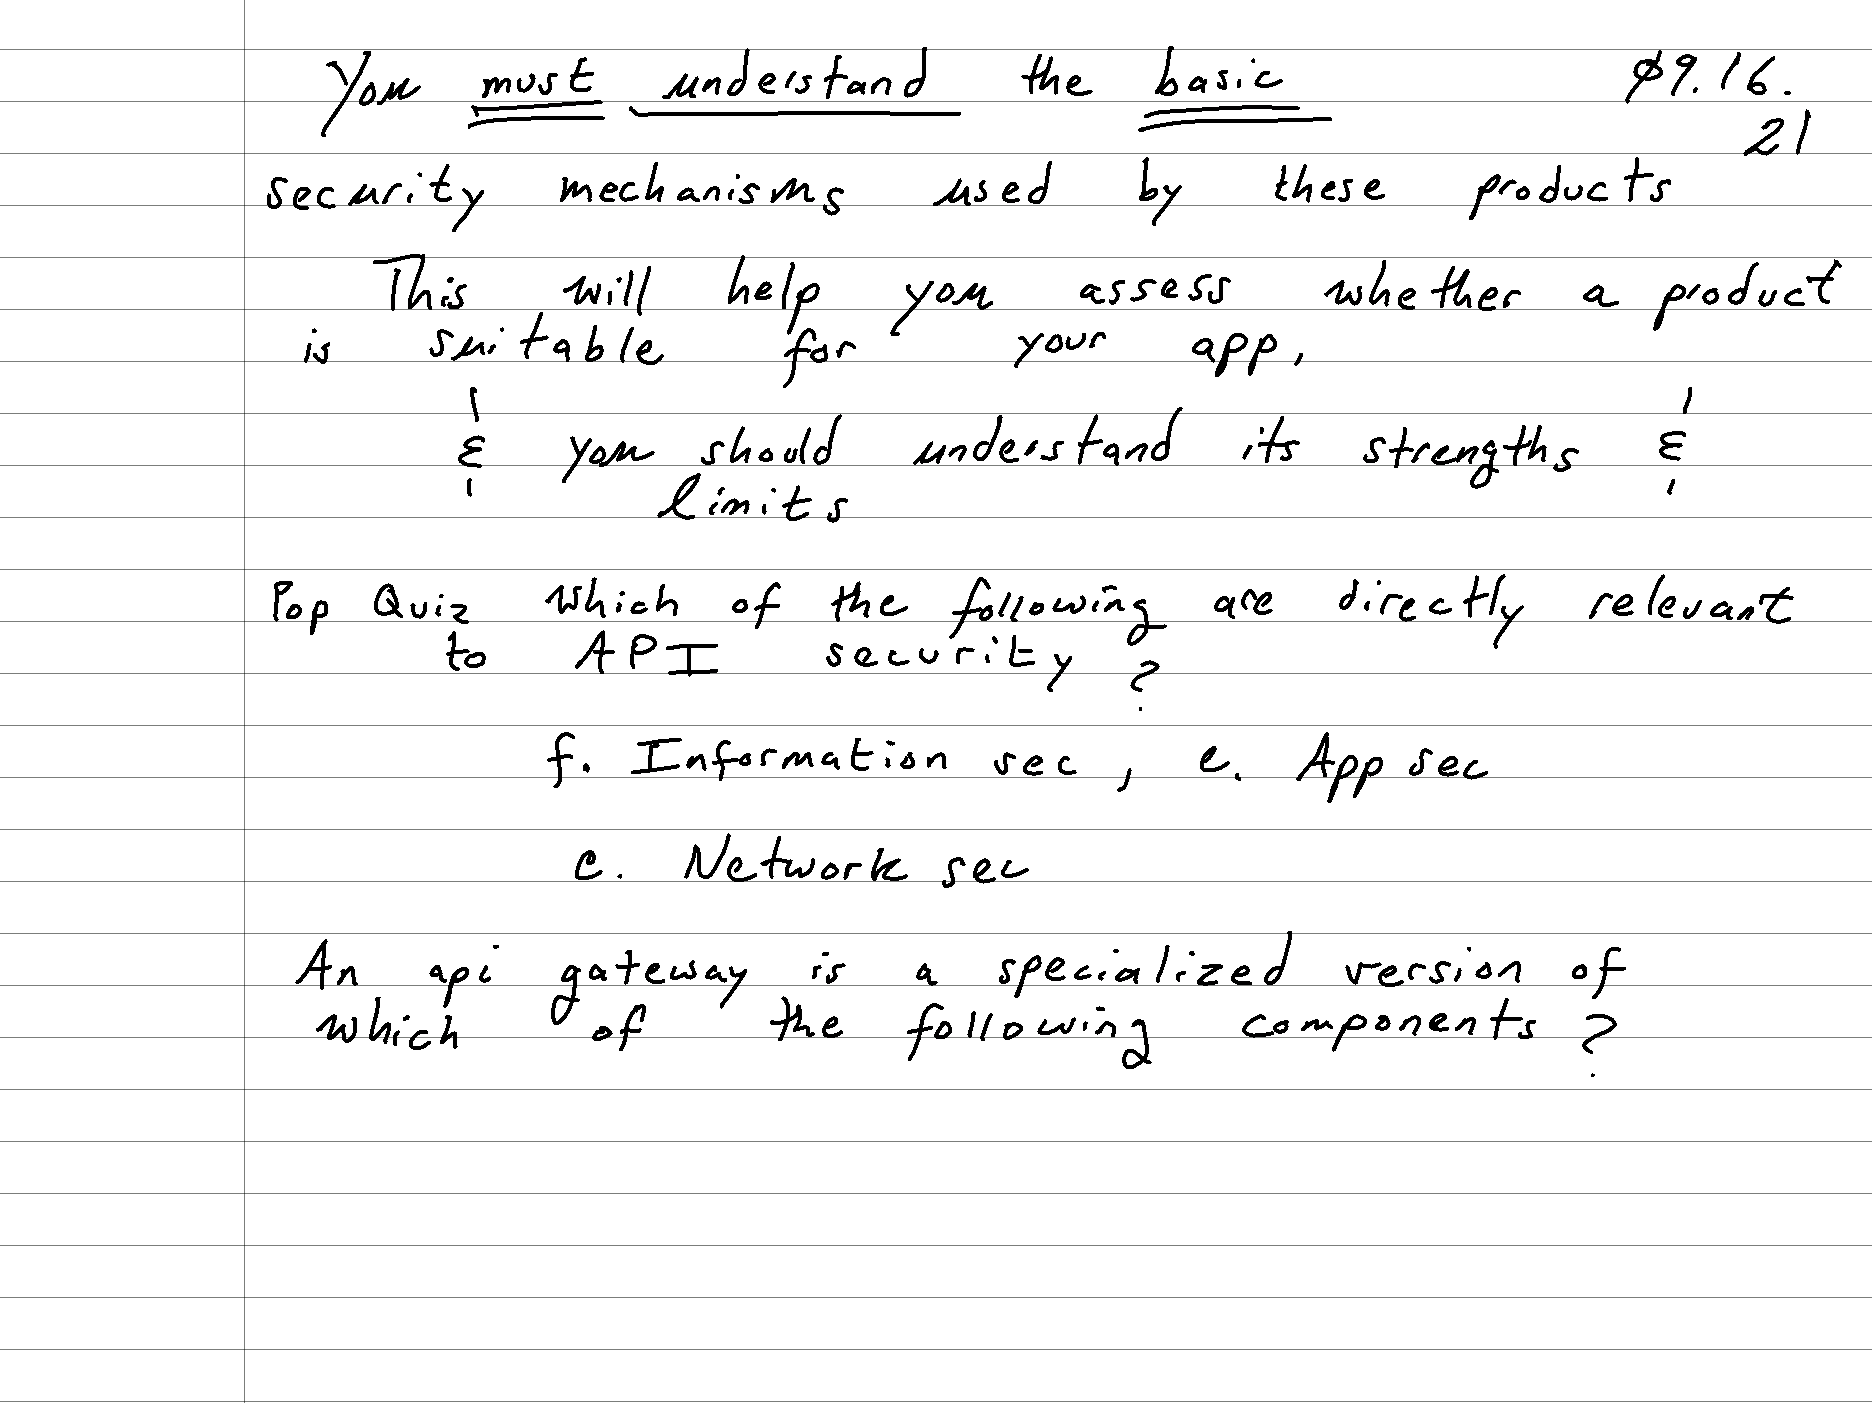 You must understand the basic ø9.16.
21
security mechanisms used by these products
This will help you assess whether a product
is suitable for your app,
& you should understand its strengths &
limits
Pop Quiz Which of the following are directly relevant
to API security?
f. Information sec, e. App sec
c. Network sec
An api gateway is a specialized version of
which of the following components?